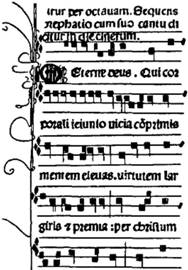 itur per octavam. Sequens
prephatio cum suo cantu di
citur in die cinerum.
Eterne deus. Qui cor
porali ieiunio vicia cōprimis
mentem elevas. virtutem lar
giris ⁊ premia: per christum